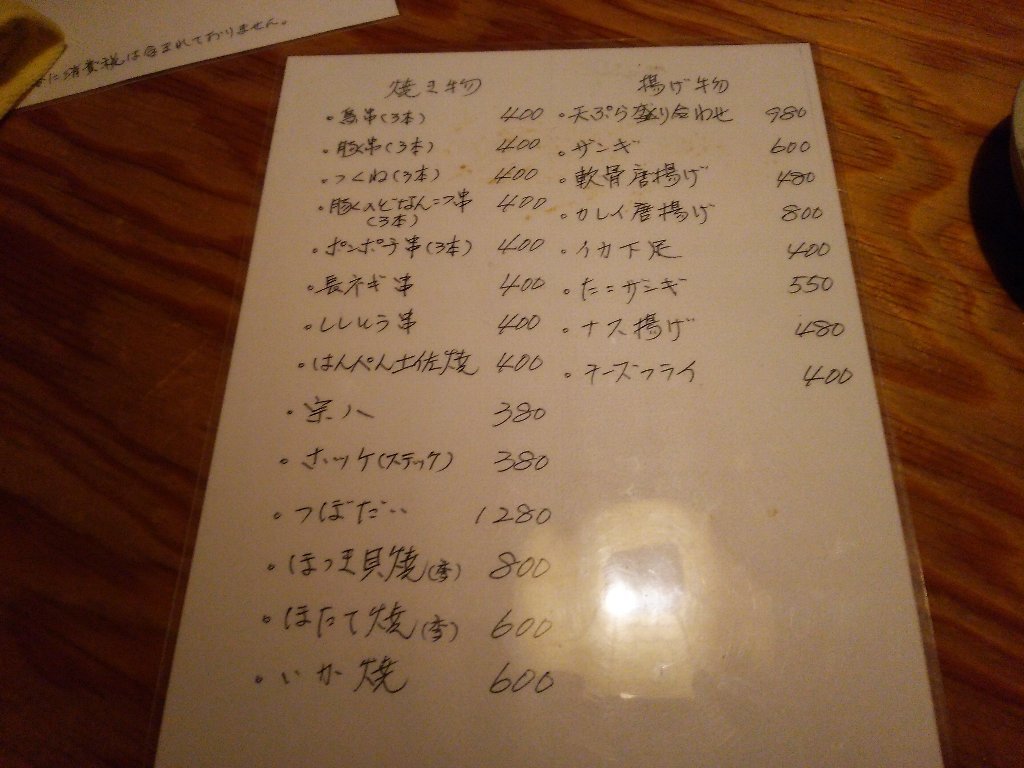 に消費税は含まれておりません。
焼き物
・鳥串(3本) 400
・豚串(3本) 400
・つくね(3本) 400
・豚のどなんこつ串 400
(3本)
・ポンポチ串(3本) 400
・長ネギ串 400
・ししとう串 400
・はんぺん土佐焼 400
・宗八 380
・ホッケ(ステック) 380
・つぼだい 1280
・ほっき貝焼 800
・ほたて焼 600
・いか焼 600
揚げ物
・天ぷら盛り合わせ 980
・ザンギ 600
・軟骨唐揚げ 480
・カレイ唐揚げ 800
・イカ下足 400
・たこザンギ 550
・ナス揚げ 480
・チーズフライ 400